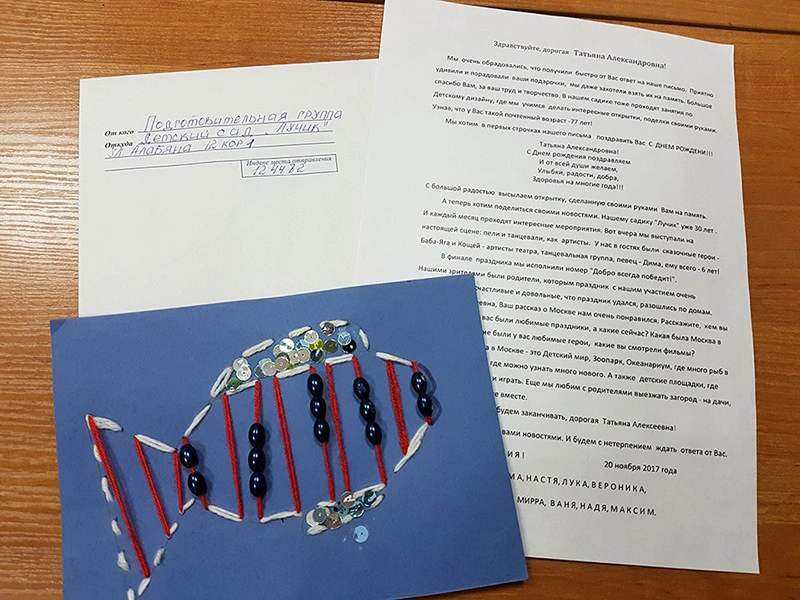 От кого Подготовительная группа
Откуда Детский сад „Лучик"
ул Алабяна 12 кор 1
Индекс места отправления
124482
Здравствуйте, дорогая Татьяна Александровна!
Мы очень обрадовались, что получили быстро от Вас ответ на наше письмо. Приятно
удивили и порадовали ваши подарочки, мы даже захотели взять их на память. Большое
спасибо Вам, за ваш труд и творчество. В нашем садике тоже проходят занятия по
Детскому дизайну, где мы учимся делать интересные открытки, поделки своими руками.
Узнав, что у Вас такой почтенный возраст -77 лет!
Мы хотим в первых строчках нашего письма поздравить Вас С ДНЕМ РОЖДЕНИ!!!
Татьяна Александровна!
С Днем рождения поздравляем
И от всей души желаем,
Улыбки, радости, добра,
Здоровья на многие года!!!
С большой радостью высылаем открытку, сделанную своими руками Вам на память.
А теперь хотим поделиться своими новостями. Нашему садику "Лучик" уже 30 лет .
И каждый месяц проходят интересные мероприятия. Вот вчера мы выступали на
настоящей сцене: пели и танцевали, как артисты. У нас в гостях были сказочные герои -
Баба-Яга и Кощей - артисты театра, танцевальная группа, певец - Дима, ему всего - 6 лет!
В финале праздника мы исполнили номер "Добро всегда победит!".
Нашими зрителями были родители, которым праздник с нашим участием очень
счастливые и довольные, что праздник удался, разошлись по домам.
Ваш рассказ о Москве нам очень понравился. Расскажите, кем вы
вас были любимые праздники, а какие сейчас? Какая была Москва в
были у вас любимые герои, какие вы смотрели фильмы?
в Москве - это Детский мир, Зоопарк, Океанариум, где много рыб в
где можно узнать много нового. А также детские площадки, где
и играть. Еще мы любим с родителями выезжать загород - на дачи,
вместе.
будем заканчивать, дорогая Татьяна Алексеевна!
вами новостями. И будем с нетерпением ждать ответа от Вас.
ИЯ!
20 ноября 2017 года
МА, НАСТЯ, ЛУКА, ВЕРОНИКА,
МИРРА, ВАНЯ, НАДЯ, МАКСИМ.